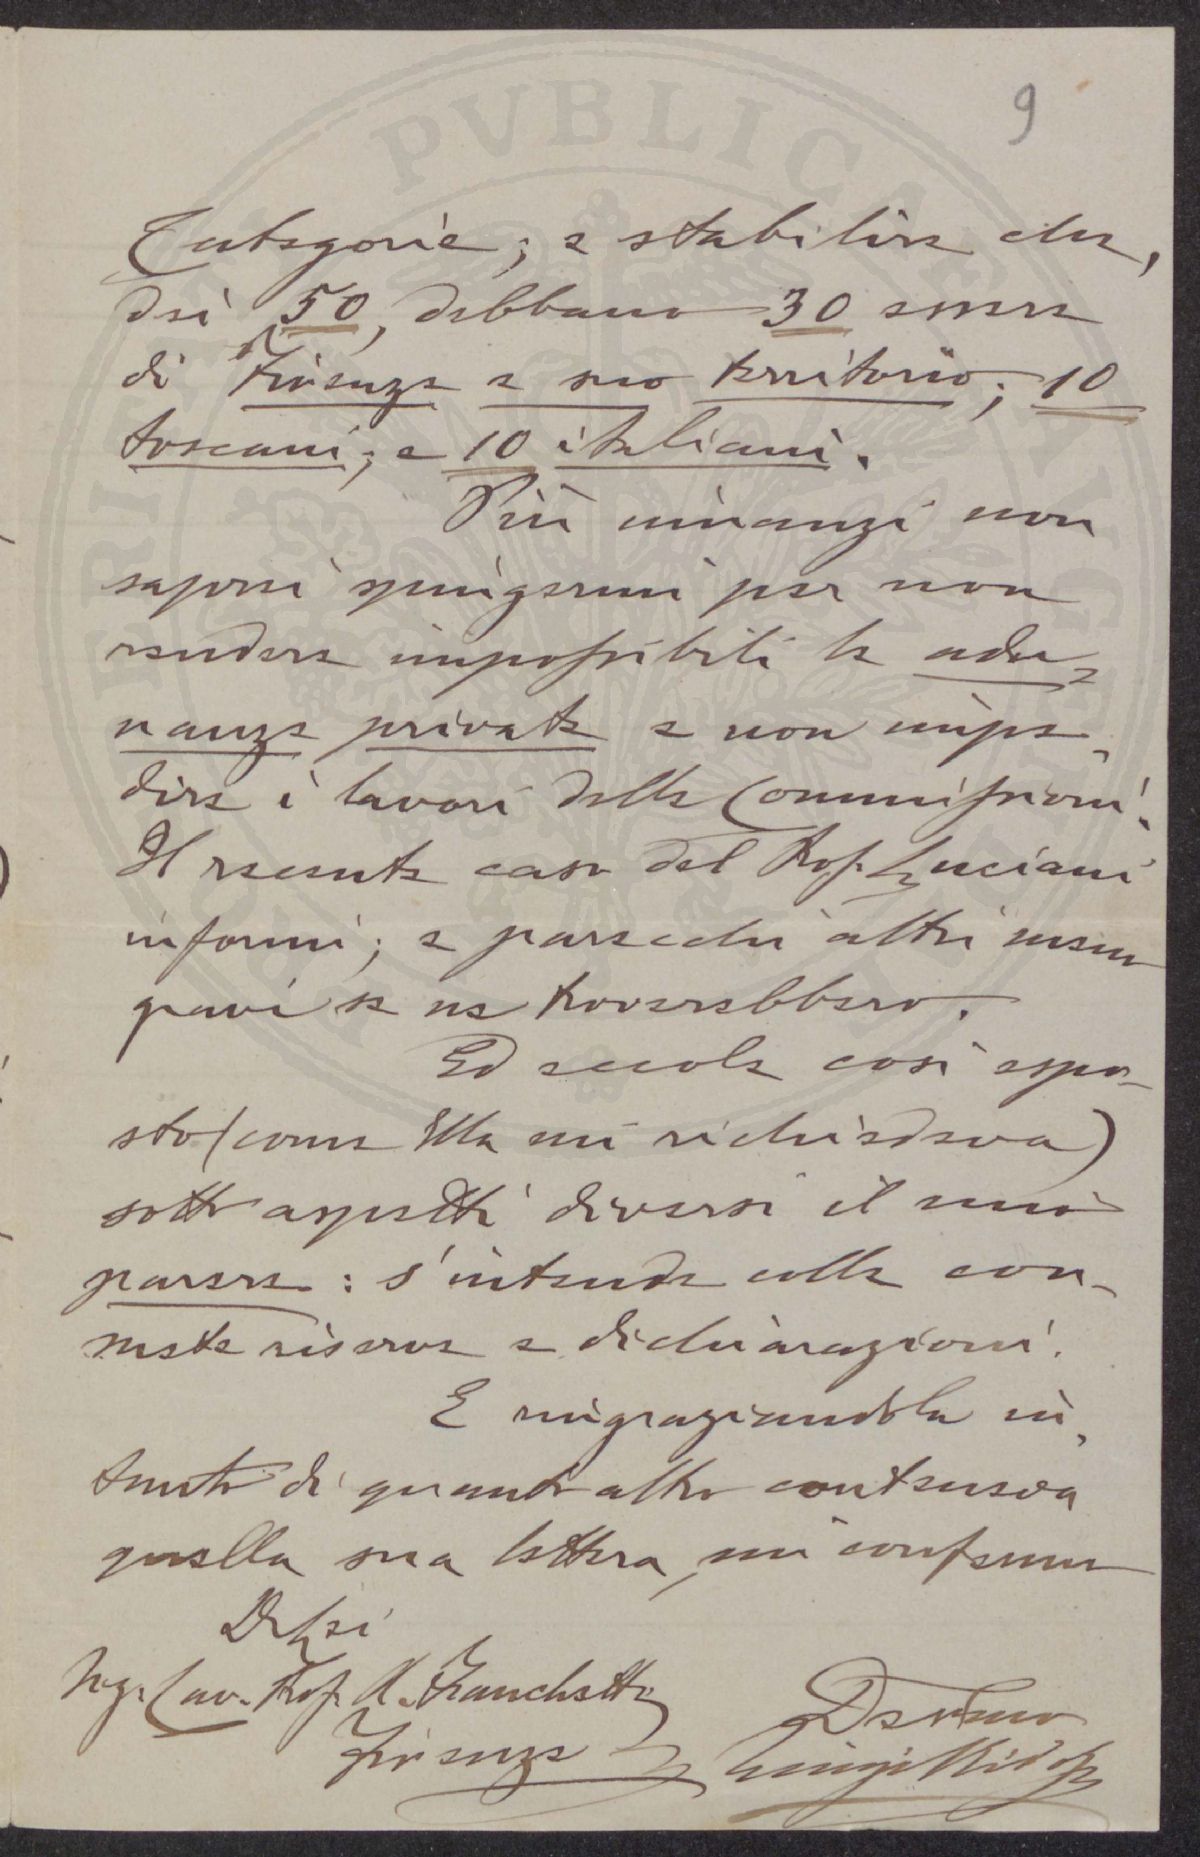 9
Categorie; e stabilire che,
dei 50, debbano 30 essere
di Firenze e suo territorio; 10
toscani; e 10 italiani.
Più innanzi non
saprei spingermi per non
rendere impossibili le adu=
nanze private e non impe-
dire i lavori delle Commissioni.
Il recente caso del Prof. Luciani
informi; e parecchi altri meno
gravi se ne troverebbero.
Ed eccole così espo-
sto (come Ella mi richiedeva)
sotto aspetti diversi il mio
parere: s'intende colle con-
suete riserve e dichiarazioni.
E ringraziandola in-
tanto di quanto altro conteneva
quella sua lettera, mi confermo
Di Lei
Sig. Cav. Prof. A. Franchetti
Firenze
Devmo
Luigi Ridolfi
PVBLICAE